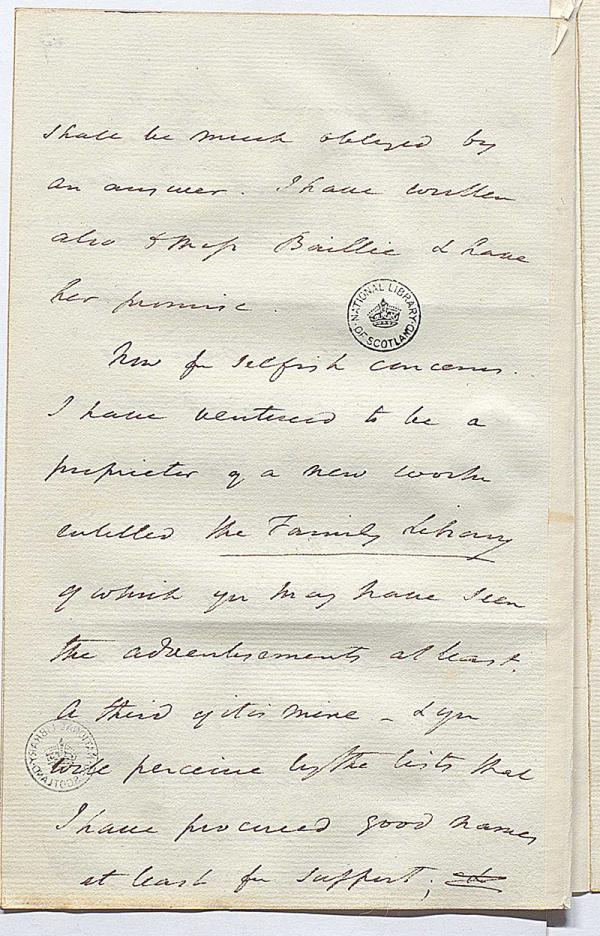 shall be much obliged by
an answer. I have written
also to Miss Baillie & have
her promise.
NATIONAL LIBRARY OF SCOTLAND
Now for selfish concerns.
I have ventured to be a
proprietor of a new work
entitled the Family Library
of which you may have seen
the advertisements at least.
A third of it is mine – & you
will perceive by the lists that
I have procured good names
at least for support;
NATIONAL LIBRARY OF SCOTLAND